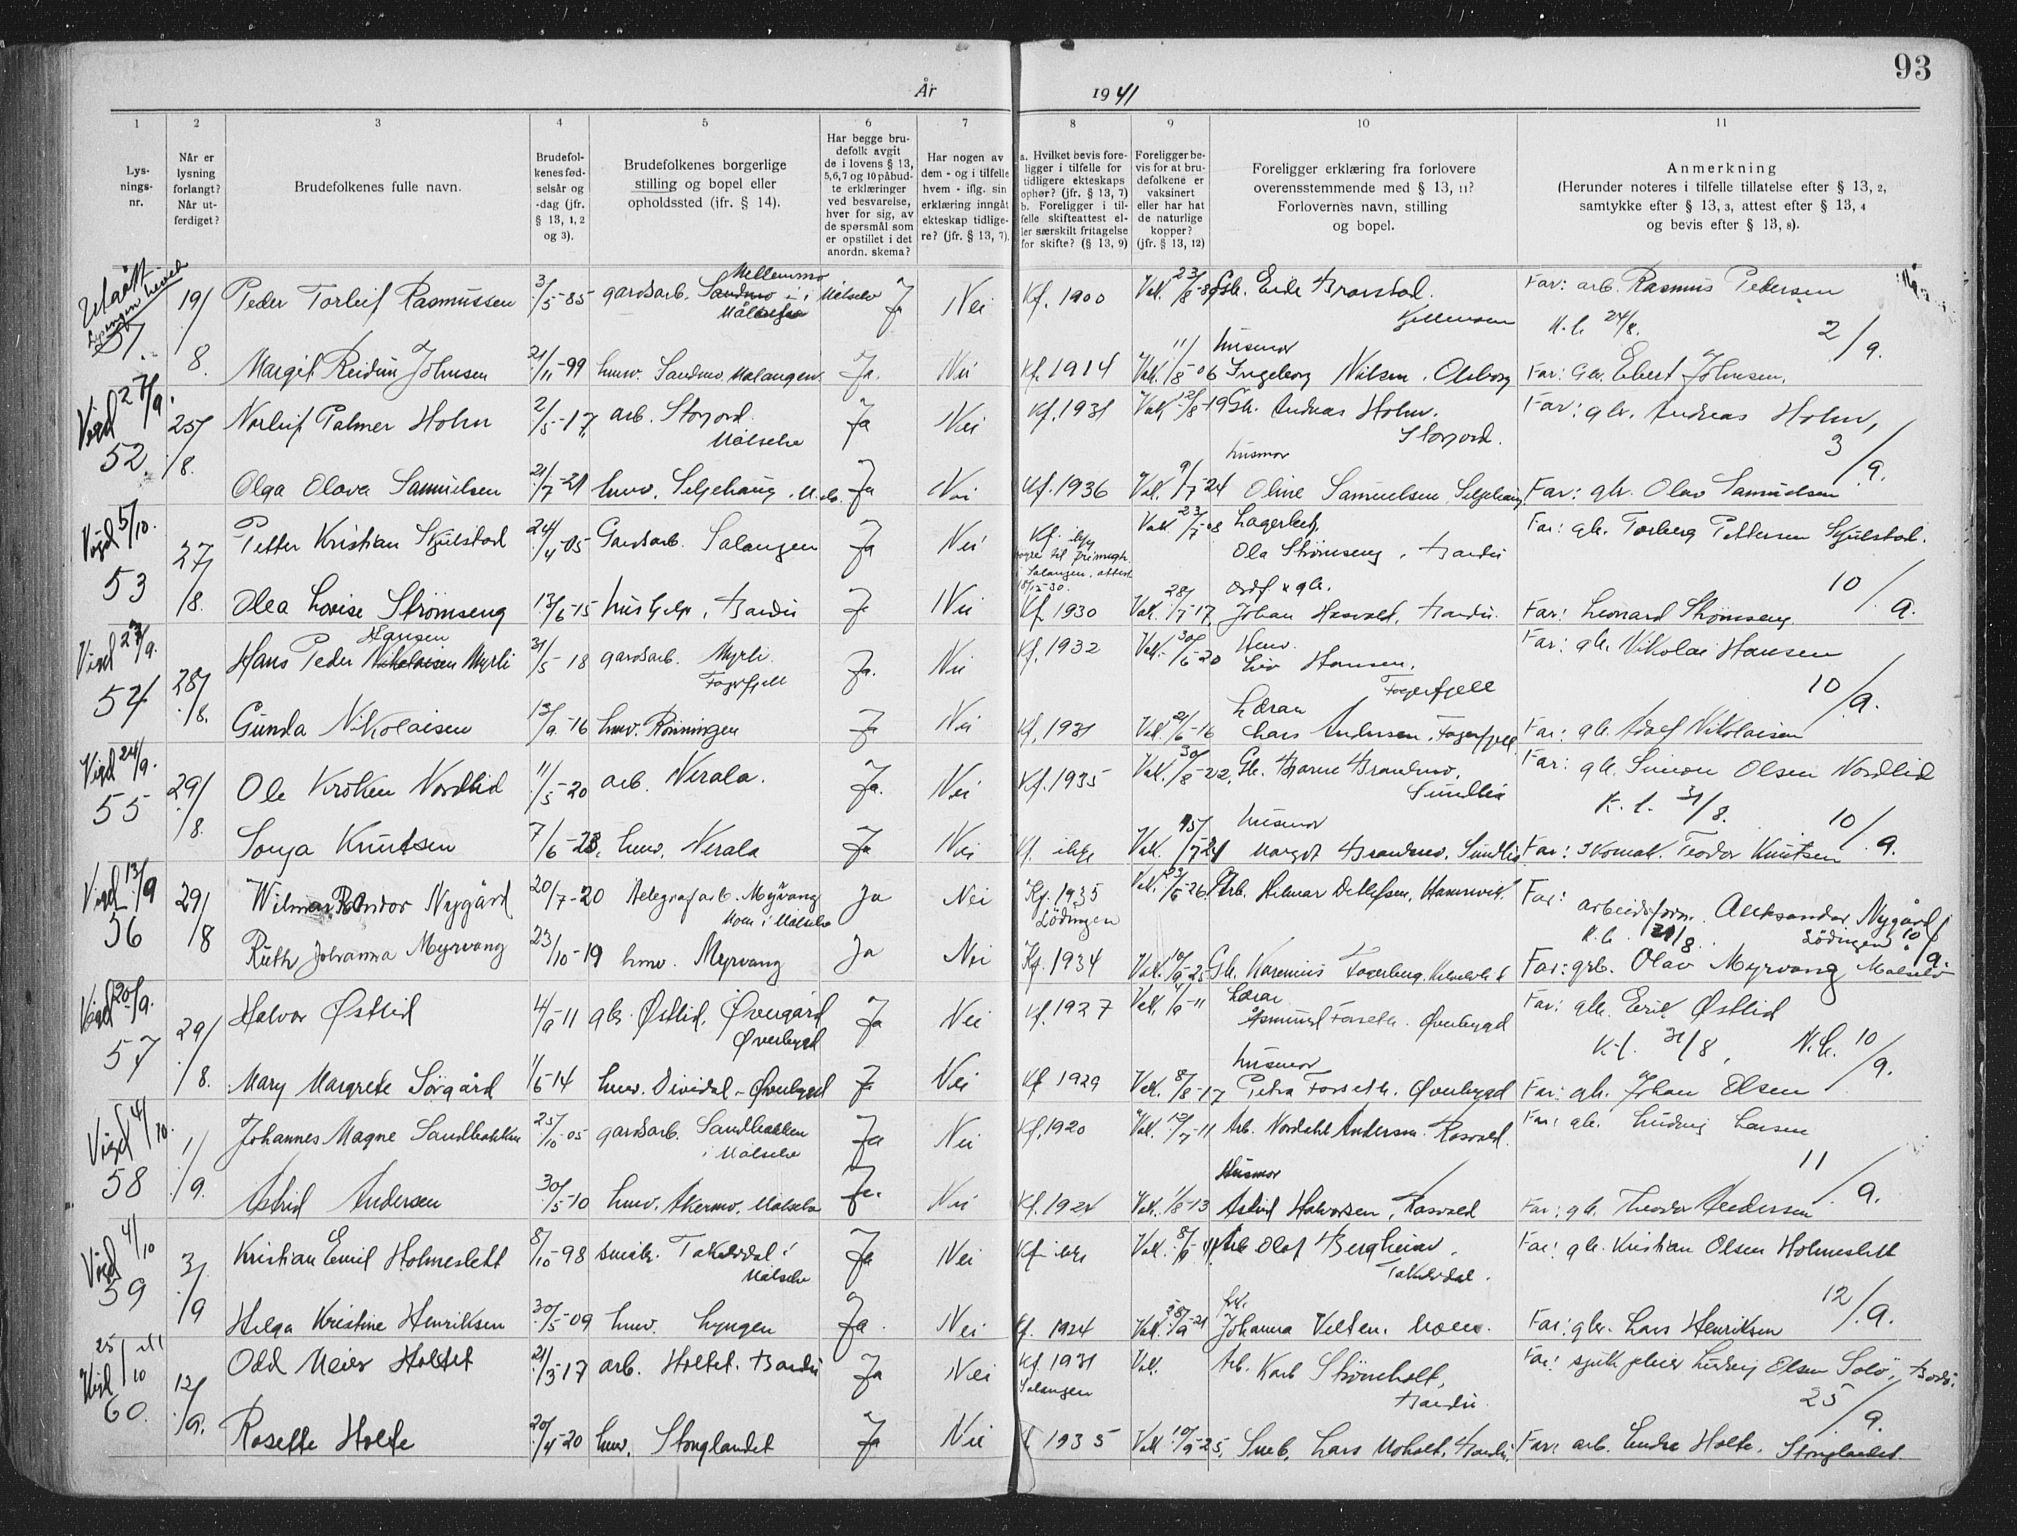 93
År 1941
1 2 3 4 5 6 7 8 9 10 11
Lys-
nings-
nr.
Når er
lysning
forlangt?
Når ut-
ferdiget?
Brudefolkenes fulle navn.
Brudefol-
kenes fød-
selsår og
-dag (jfr.
§ 13, 1, 2
og 3).
Brudefolkenes borgerlige
stilling og bopel eller
opholdssted (ifr. § 14).
Har begge bru-
defolk avgit
de i lovens § 13,
5,6,7 og 10 påbud-
te erklæringer
ved besvarelse,
hver for sig, av
de spørsmål som
er opstillet i det
anordn. skema?
Har nogen av
dem - og i tilfelle
hvem - iflg. sin
erklæring inngåt
ekteskap tidlige-
re? (jfr. § 13, 7).
a. Hvilket bevis fore-
ligger i tilfelle for
tidligere ekteskaps
ophør? (ifr. § 13, 7)
b. Foreligger i til-
felle skifteattest el-
ler særskilt fritagelse
for skifte? (§ 13, 9)
Foreligger be-
vis for at bru-
defolkene er
vaksinert
eller har hat
de naturlige
kopper?
(jfr. § 13, 12)
Foreligger erklæring fra forlovere
overensstemmende med § 13, 11?
Forlovernes navn, stilling
og bopel.
Anmerkning
(Herunder noteres i tilfelle tillatelse efter § 13, 2,
samtykke efter § 13, 3, attest efter § 13, 4
og bevis efter § 13, 8).
51 19/8. Peder Torleif Rasmussen 3/5-85 gardsarb. Mellemmo i Målselv Ja Nei Kf. 1900 Far: arb. Rasmus Pedersen
K.l. 24/8. 2/9.
Margit Reidun Johnsen 21/11-99 hmv. Sandmo Malangen. Ja. Nei Kf. 1914 Vak. 11/8-06 husmor Ingeborg Nilsen. Olsborg Far: Gbr. Ebert Johnsen.
Vigd 27/9. 52. 25/8. Norleif Palmer Holm 2/5-17 arb. Storjord Målselv Ja Nei Kf. 1931 Gbr. Andreas Holm. Storjord. Far: gbr. Andreas Holm,
3/9.
Olga Olava Samuelsen 21/7-21 hmv. Seljehaug. Ja Nei Kf. 1936 Vak. 9/7-24 husmor Oline Samuelsen Seljehaug Far: gbr. Olav Samuelsen
Vigd 5/10. 53 27/8. Petter Kristian Skjelstad 24/4-05 Gardsarb. Salangen Ja Nei Kf. Vak 23/7-08 Lagerbet. Ola Strømseng, Bardu Far: gbr. Torberg Pettersen Skjelstad.
10/9.
Olea Lovise Strømseng 13/6-15 hushjelp, Bardu Ja Nei Kf. 1930 Vak. 28/7-17 Johan Bardu. Far: Leonard Strømseng.
Vigd 27/9. 54 28/8. Hans Peder Hansen Myrli 31/5-18 gardsarb. Myrli Fagerfjell Ja. Nei Kf. 1932 Vak. 30/6-20 Hmv. Liv Hansen, Fagerfjell Far: gbr. Nikolai Hansen
10/9.
Gunda Nikolaisen 13/9-16 hmv. Rønningen Ja Nei Kf. 1931 Vak. 21/6-16 Lærar Lars Andersen, Fagerfjell Far: gbr. Adolf Nikolaisen
Vigd 24/9. 55 29/8. Ole Kroken Nordlid 11/5-20 arb. Nerala. Ja. Nei Kf. 1935 Vak. 30/8-22. Gbr. Bjarne Brandmo, Sundlia Far: gbr. Simon Olsen Nordlid
K.l. 31/8. 10/9.
Sonja Knutsen 7/6-23. hmv. Nerala Ja Nei Kf. ikke husmor Margot Brandmo. Sundlia Far: Skomak. Teodor Knutsen
Vigd 13/9 56 29/8 Nygård 20/7-20 telegrafarb. Myrvang Mom i Målselv Ja Nei Kf. 1935 Lödingen Arb. Hilmar Detlefsen, Hamnvik. Far: arbeidsform. Aleksander Nygård, Lödingen.
K.l. 31/8. 10/9.
Ruth Johanna Myrvang 23/10-19 hmv. Myrvang Ja Nei Kf. 1934 Gbr. Karenius Fagerberg, Far: grb. Olav Myrvang Målselv
Vigd 20/9. 57 29/8. Halvor Østlid 14/9-11 gbr. Østlid, Øvergård Øverbygd Ja Nei Kf. 1927 Lærar Åsmund Forseth. Øverbygd Far: gbr. Erik Østlid
K.l. 31/8, N.G. 10/9.
Mary Margrete Sørgård 11/6-14 hmv. Dividal - Øverbygd Ja Nei Kf 1929 Vak. 8/8-17 husmor Petra Forseth. Øverbygd Far: gbr. Johan Olsen
Vigd 4/10. 58 1/9. Johannes Magne Sandbakken 25/10-05 gardsarb. Sandbakken i Målselv Ja Nei Kf. 1920 Vak. 12/7-11 Arb. Nordahl Andersen. Rosvold. Far: gbr. Ludvig Larsen
11/9.
Astrid Andersen 30/5-10 hmv. Akermo. Målselv Ja. Nei Kf. 1924 Vak. 1/8-13 Husmor Astrid Halvorsen, Rosvold Far: gb. Theodor Andersen
Vigd 4/10 59 3/9 Kristian Emil Holmeslett 8/10-98 småbr. Takelvdal i Målselv Ja Nei Kf ikke Arb Olaf Bergheim, Takelvdal. Far: gbr. Kristian Olsen Holmeslett
12/9.
Helga Kristine Henriksen 30/5-09 hmv. Lyngen Ja. Nei Kf. 1924 frk. Johanna Velten. Moen. Far: gbr. Lars Henriksen
Vigd 25/10 60. 12/9. Odd Meier Holtet 21/3-17 arb. Holtet. Bardu Ja Nei Kf 1931 Salangen Vak. Arb. Karl Strømholt, Bardu. Far: Ludvig Olsen
25/9.
Rosette Holte 20/4-20 hmv. Stonglandet Ja Nei 1935 Vak 10/9-25. Lars Moholt, Bardu. Far: arb. Endre Holte. Stonglandet.